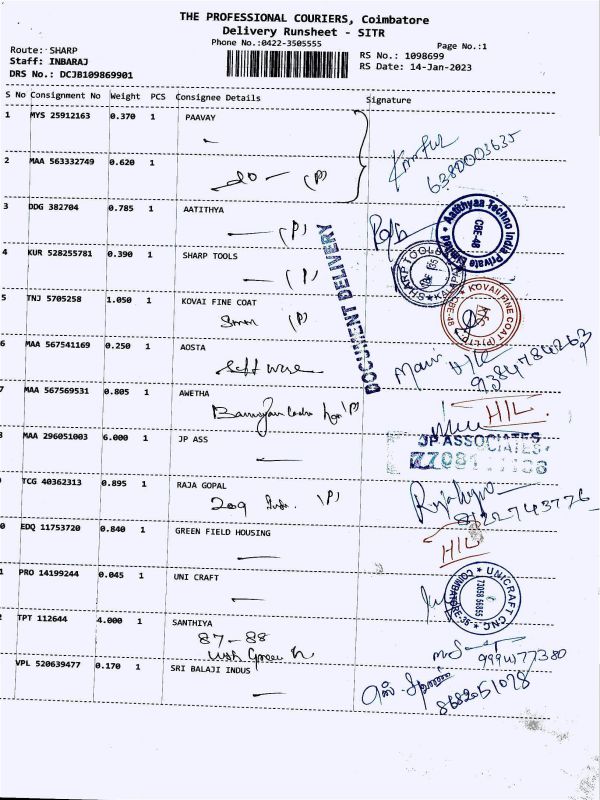 THE PROFESSIONAL COURIERS, Coimbatore
Delivery Runsheet - SITR
Phone No.:0422-3505555
Page No.:1
Route: SHARP
RS No.: 1098699
Staff: INBARAJ
RS Date: 14-Jan-2023
DRS No.: DCJB109869901
S No Consignment No Weight PCS Consignee Details Signature
1 MYS 25912163 0.370 1 PAAVAY
2 MAA 563332749 0.620 1
do - (P)
6380003635
3 DDG 382704 0.785 1 AATITHYA
(P)
Aatithyaa Techno India Private Limited
CBE-48
4 KUR 528255781 0.390 1 SHARP TOOLS
(P)
SHARP TOOLS
DOCUMENT DELIVERY
5 TNJ 5705258 1.050 1 KOVAI FINE COAT
(P)
KOVAI FINE COAT (P) LTD
CBE-48
6 MAA 567541169 0.250 1 AOSTA
Software
9384784263
7 MAA 567569531 0.805 1 AWETHA
(P)
H/L
MAA 296051003 6.000 1 JP ASS
JP ASSOCIATES
TCG 40362313 0.895 1 RAJA GOPAL
209 (P)
8122743776
0 EDQ 11753720 0.840 1 GREEN FIELD HOUSING
H/L
1 PRO 14199244 0.045 1 UNI CRAFT
UNICRAFT CNC
73058 56855
2 TPT 112644 4.000 1 SANTHIYA
87-88
9994177380
VPL 520639477 0.170 1 SRI BALAJI INDUS
8682051078